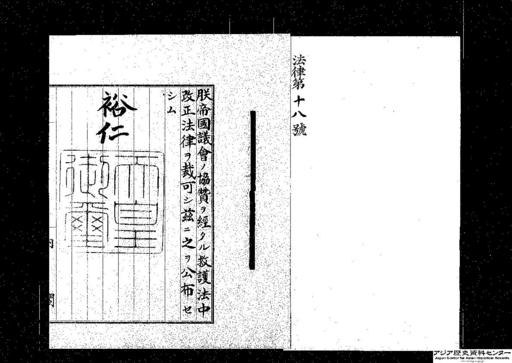 法律第十八號
朕帝國議會ノ協贊ヲ經タル救護法中
改正法律ヲ裁可シ茲ニ之ヲ公布セ
シム
裕仁
天皇
御璽
内
閣
アジア歴史資料センター
Japan Center for Asian Historical Records